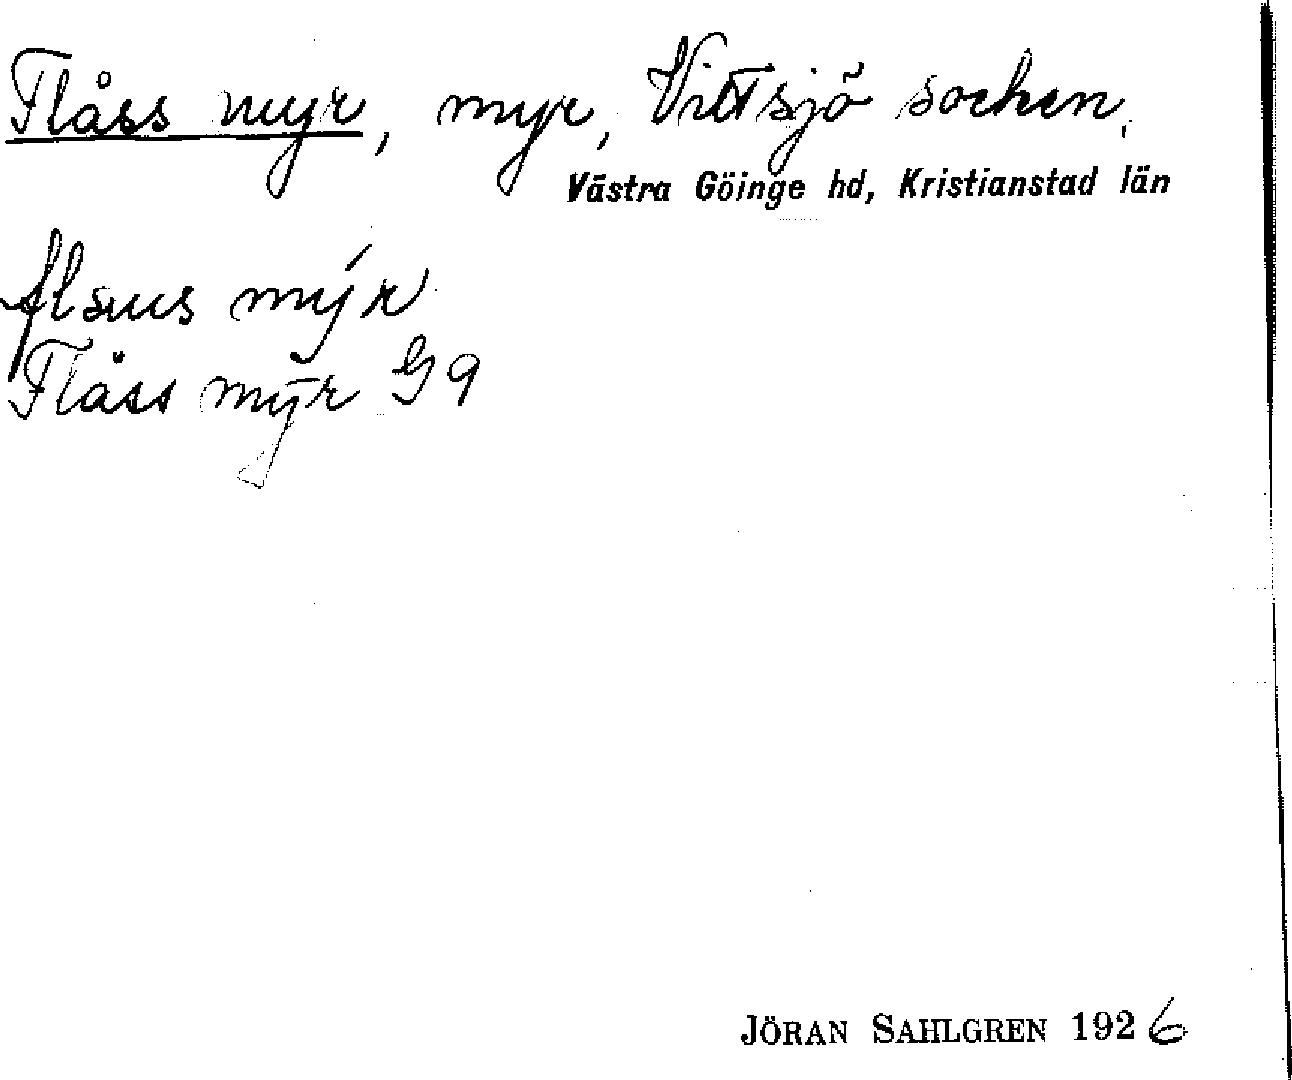 Flåss myr, myr, Vittsjö socken,
Västra Göinge hd, Kristianstad län
mýr
Flåss mȳr G 9
JÖRAN SAHLGREN 1926